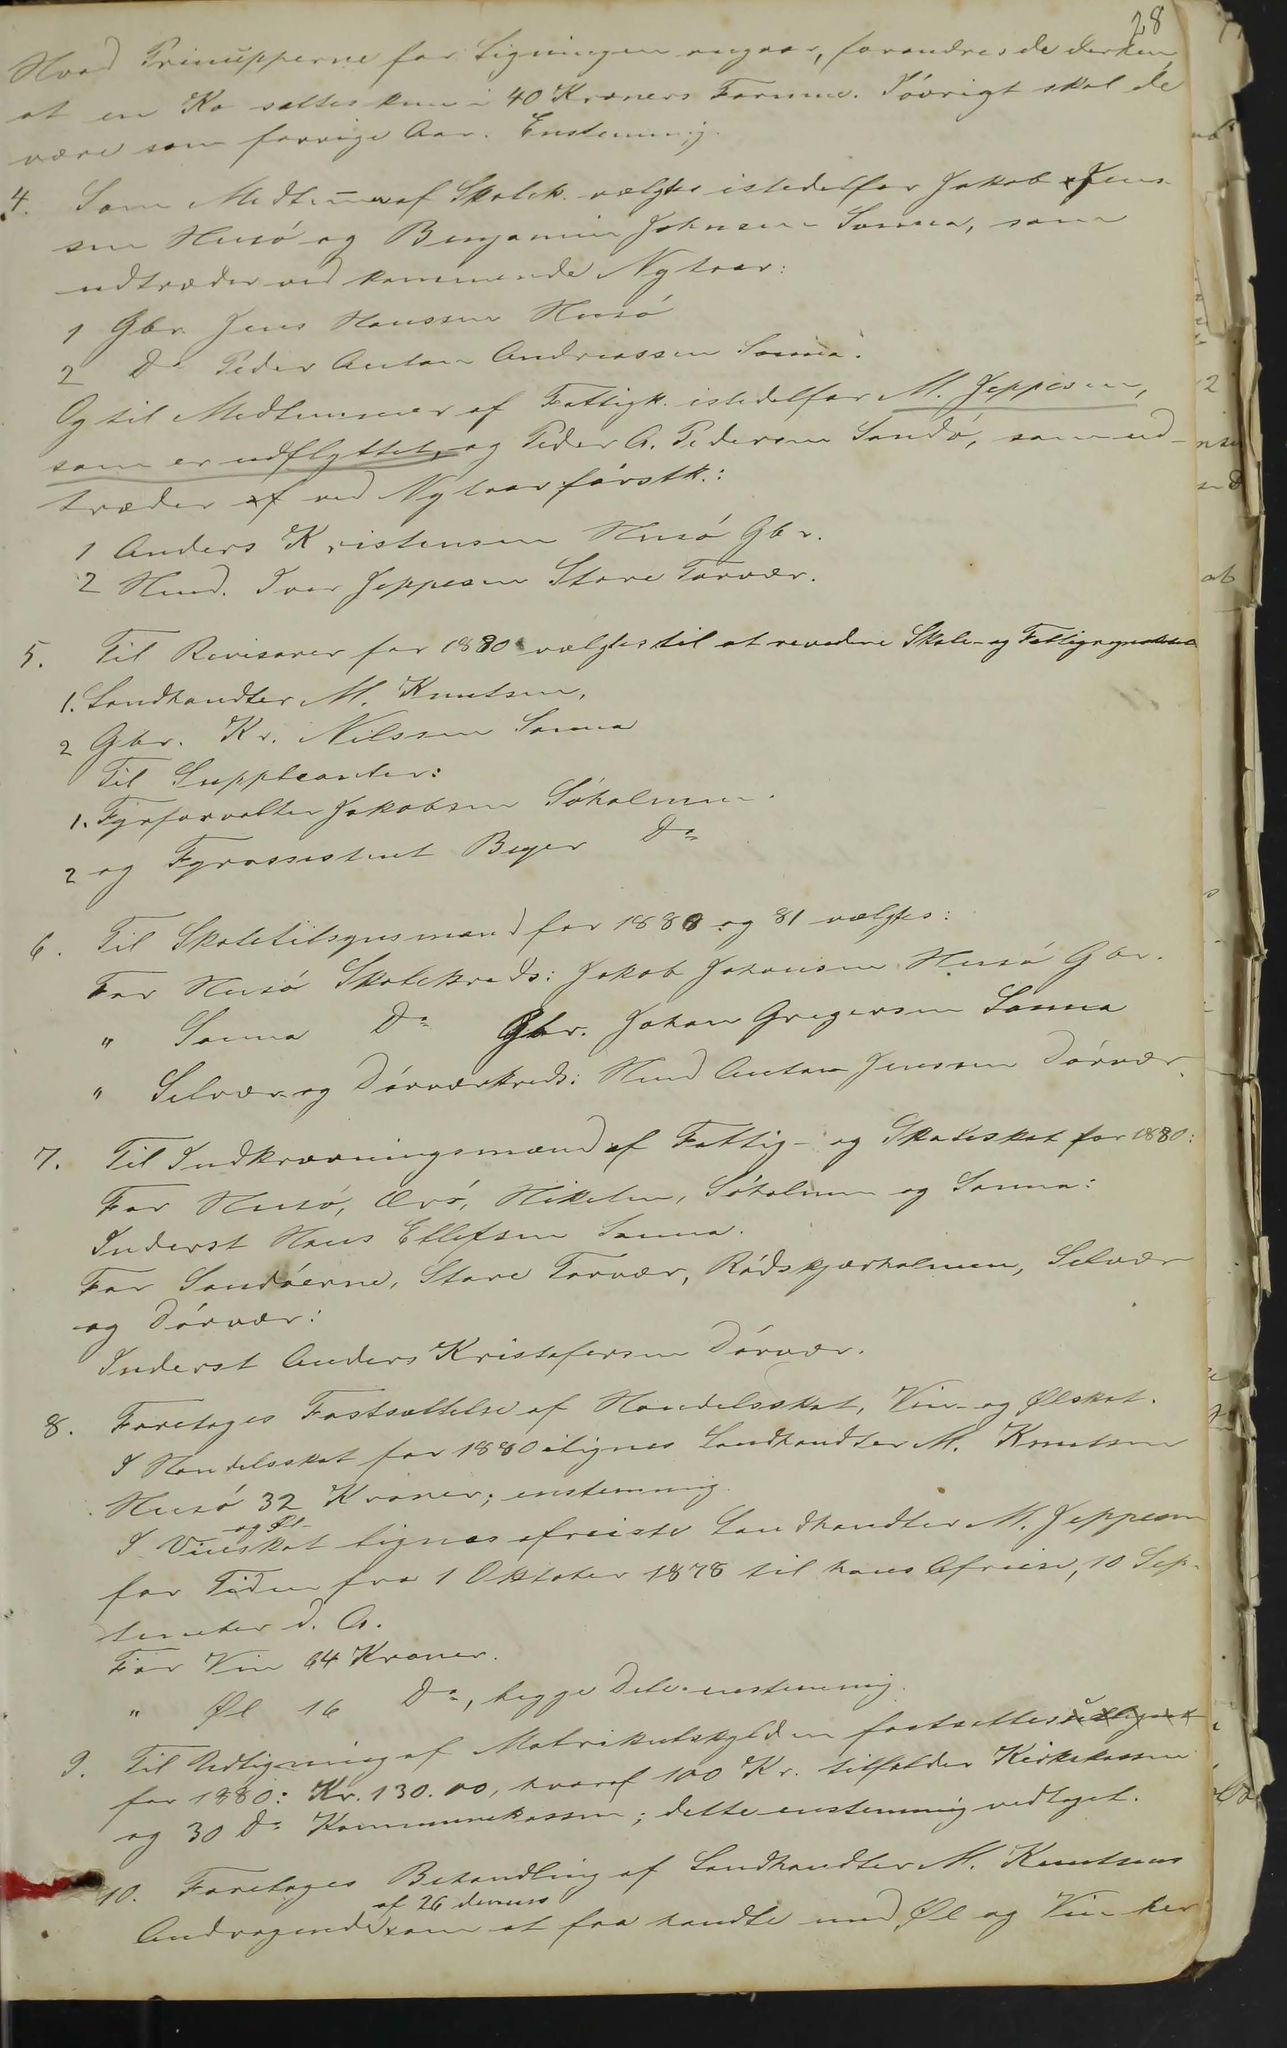 28
Hvad Principperne for Ligningen angaar, forandres de derhen,
at en Ko sættes kun i 40 Kroners Formue. Iövrigt skal de
være som forrige Aar. Enstemmig.
4. Som Medlem̅er af Skolek. vælges istedetfor Jakob Jens-
sen Husö og Benjamin Johnsen Sanna, som
udtræder ved kommende Nytaar:
1 Gbr. Jens Hanssen Husö
2 Do Peder Anton Andreassen Sanna.
Og til Medlemmer af Fattigk. istedetfor M. Jeppesen,
som er udflyttet, og Peder A. Pedersen Sandö, som ud-
træder af ved Nytaar förstk.:
1 Anders Kristensen Husö Gbr.
2 Hmd. Iver Jeppesen Store Torvær.
5. Til Revisorer for 1880 vælges til at revidere Skole- og Fattigregnskabet
1. Landhandler M. Knutsen,
2 Gbr. Kr. Nilssen Sanna
Til Suppleanter:
1. Fyrforvalter Jakobsen Söholmen.
2 og Fyrassistent Beyer Do
6. Til Skoletilsynsmænd for 1880 og 81 vælges:
For Husö Skolekreds: Jakob Johansen Husö Gbr.
" Sanna Do Gbr. Johan Gregersen Sanna
" Selvær- og Dörværkreds: Hmd Anton Jenssen Dörvær.
7. Til Indkrævningsmænd af Fattig- og Skoleskat for 1880:
For Husö, Ærö, Hikelen, Söholmen og Sanna:
Inderst Hans Ellefsen Sanna.
For Sandöerne, Store Torvær, Rödskjærholmen, Selvær
og Dörvær:
Inderst Anders Kristofersen Dörvær.
8. Foretoges Fastsættelse af Handelsskat, Vin- og Ølskat.
I Handelsskat for 1880 ilignes Landhandler M. Knutsen
Husö 32 Kroner; enstemmig.
og Øl-
I Vinskat lignes afreiste Landhandler M. Jeppesen
for Tiden fra 1 Oktober 1878 til hans Afreise, 10 Sep-
tember d. A.
For Vin 64 Kroner.
" Øl 16 Do, begge Dele enstemmig.
9. Til Udligning af Matrikulskylden fastsættes
for 1880: Kr. 130.00, hvoraf 100 Kr. tilfalder Kirkekassen
og 30 Do Kommunekassen; dette enstemmig vedtaget.
10. Foretoges Behandling af Landhandler M. Knutsens
af 26 dennes
Andragende om at faa handle med Øl og Vin her